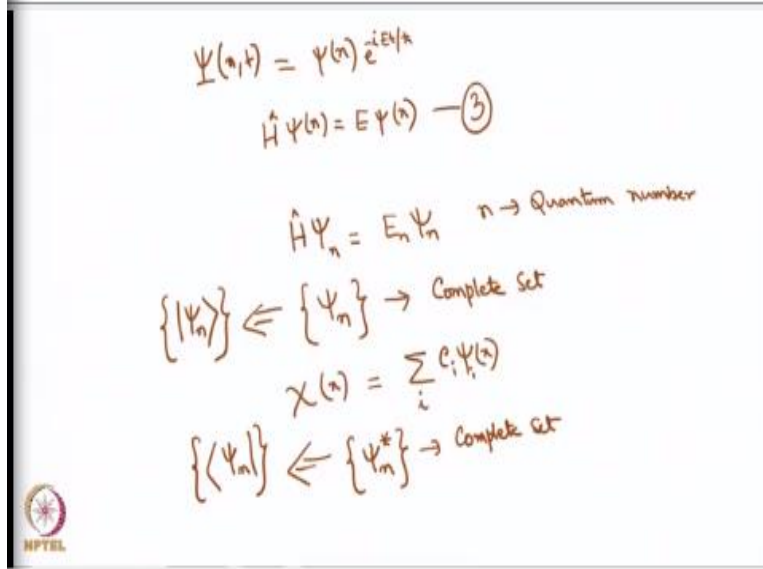 Ψ(x,t) = ψ(x) e^{-iEt/ħ}
Ĥ ψ(x) = E ψ(x) — ③
Ĥ Ψ_n = E_n Ψ_n   n → Quantum number
{|Ψ_n⟩} ⇐ {Ψ_n} → Complete Set
χ(x) = Σ_i c_i Ψ_i(x)
{⟨Ψ_m|} ⇐ {Ψ_m^*} → Complete Set
NPTEL